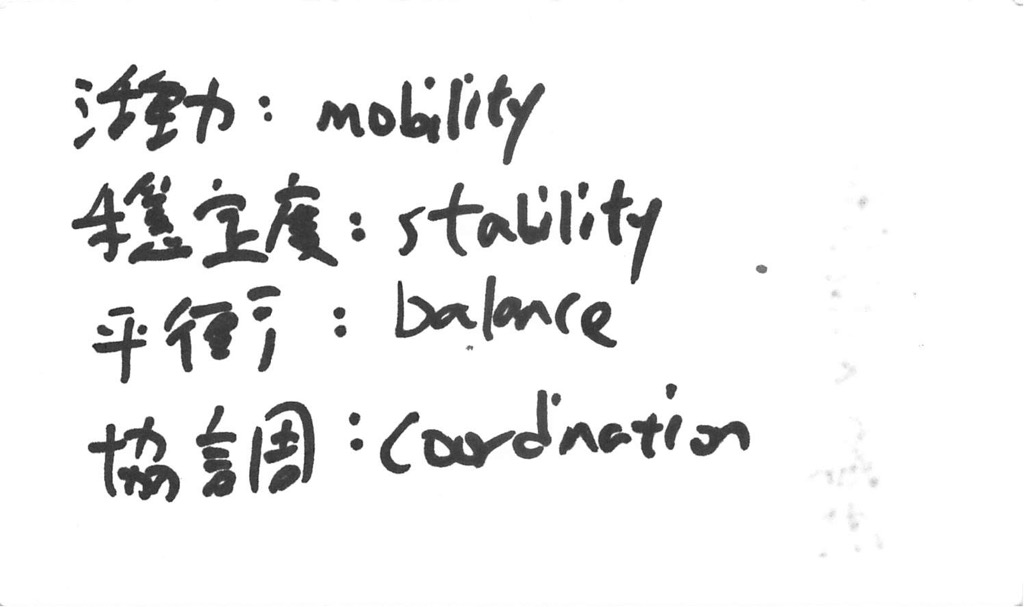 活動: mobility
穩定度: stability
平衡: balance
協調: coordination